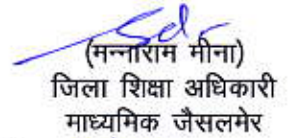 Sd/-
(मन्नाराम मीना)
जिला शिक्षा अधिकारी
माध्यमिक जैसलमेर